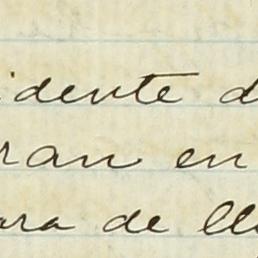 idente d
ran en
ara de ll